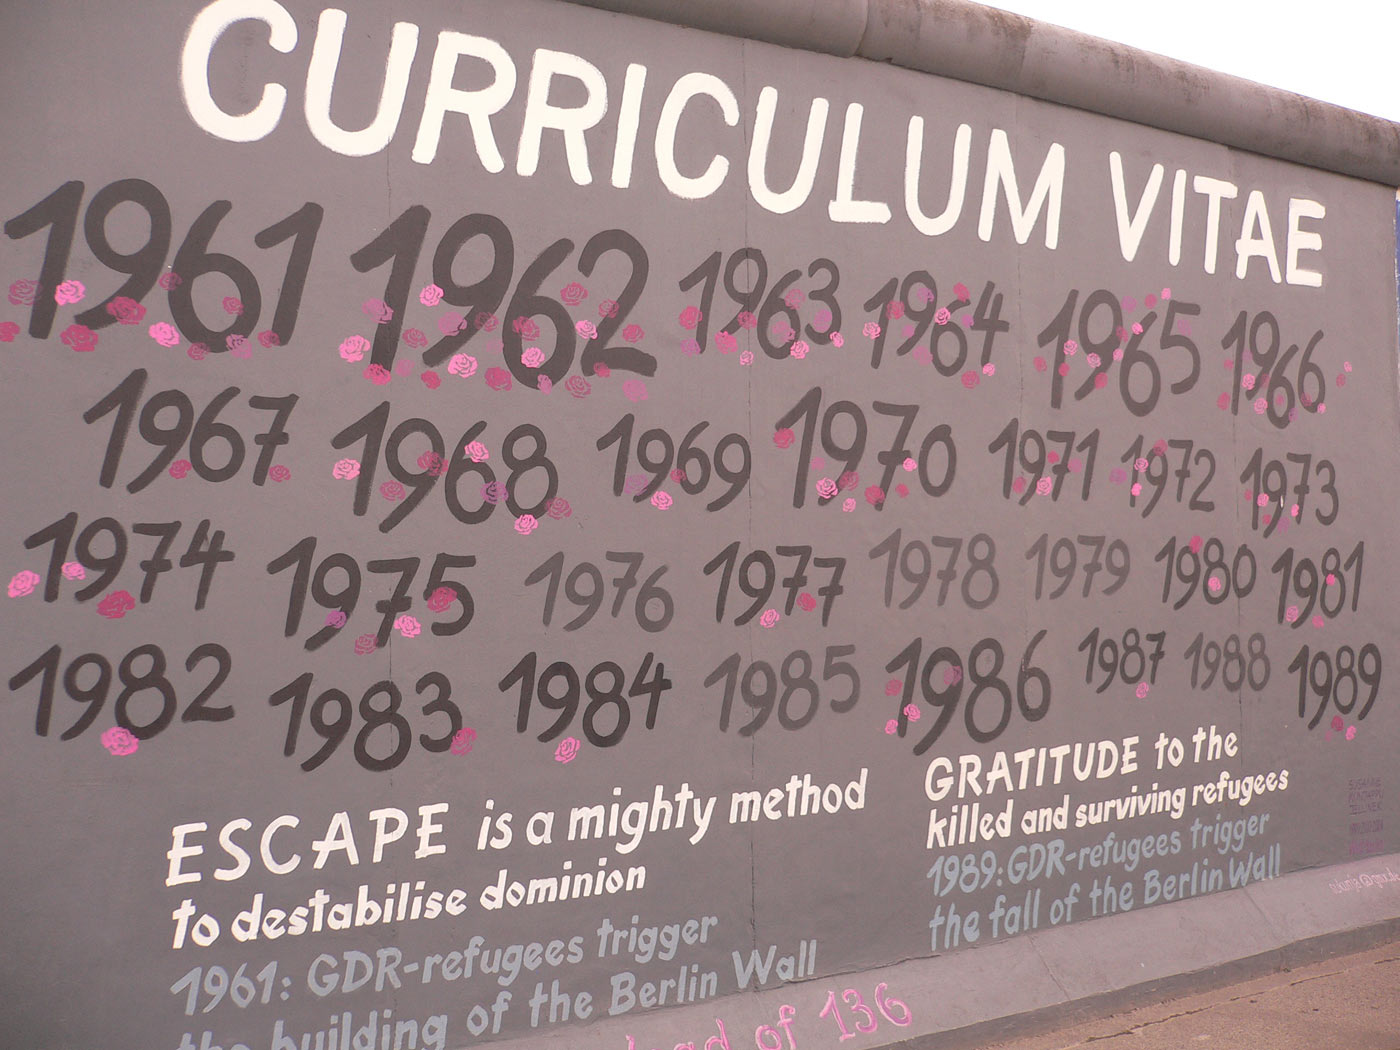 CURRICULUM VITAE
1961 1962 1963 1964 1965 1966
1967 1968 1969 1970 1971 1972 1973
1974 1975 1976 1977 1978 1979 1980 1981
1982 1983 1984 1985 1986 1987 1988 1989
ESCAPE is a mighty method
to destabilise dominion
1961: GDR-refugees trigger
the building of the Berlin Wall
of 136
GRATITUDE to the
killed and surviving refugees
1989: GDR-refugees trigger
the fall of the Berlin Wall